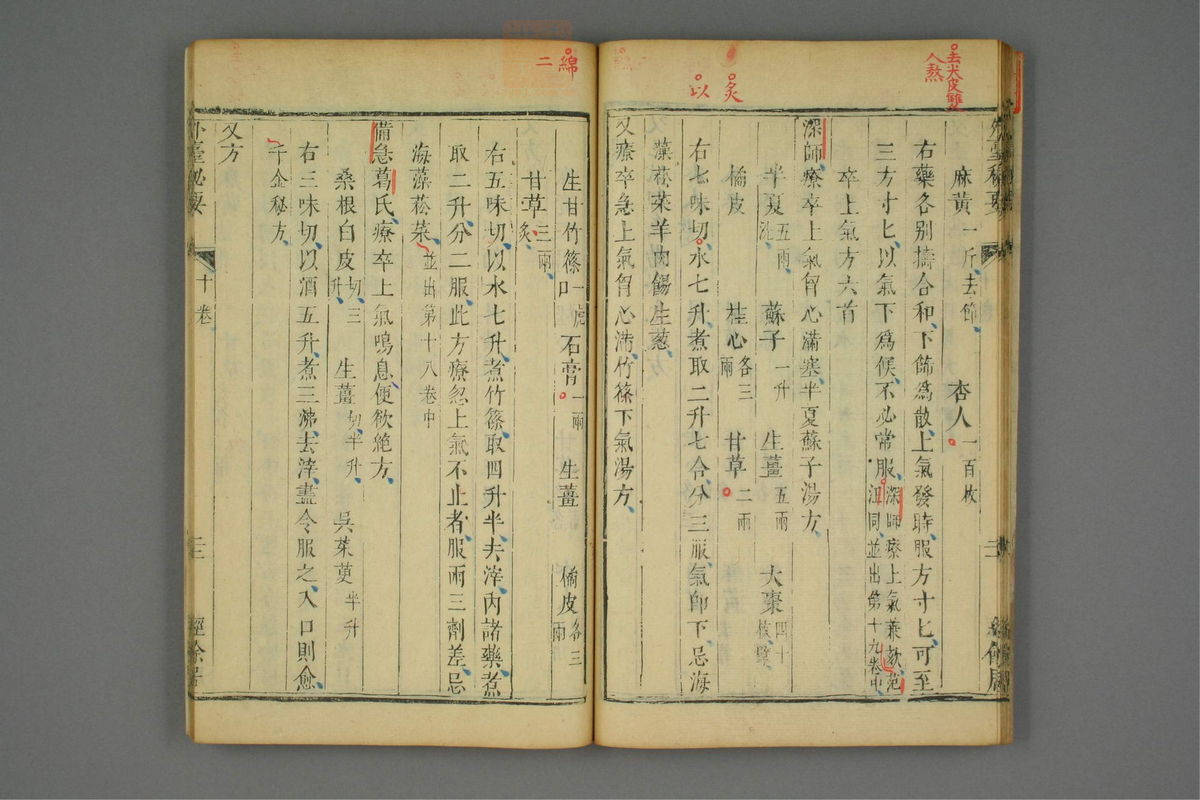 去尖皮雙
人熬
炙
以
麻黃一斤去節 杏人一百枚
右藥各别擣合和下篩爲散上氣發時服方寸匕可至
三方寸匕以氣下爲候不必常服深師療上氣兼欬范
汪同並出第十九卷中
卒上氣方六首
深師療卒上氣胷心滿塞半夏蘇子湯方
半夏五兩洗 蘇子一升 生薑五兩 大棗四十枚擘
橘皮 桂心各三兩 甘草二兩
右七味切水七升煮取二升七合分三服氣即下忌海
藻菘菜羊肉餳生葱
又療卒急上氣胷心滿竹篠下氣湯方
綿
二
生甘竹篠一虎口 石膏一兩 生薑 橘皮各三兩
甘草三兩炙
右五味切以水七升煮竹篠取四升半去滓內諸藥煮
取二升分二服此方療忽上氣不止者服兩三劑差忌
海藻菘菜並出第十八卷中
備急葛氏療卒上氣鳴息便欲絕方
桑根白皮切三升 生薑切半升 吳茱萸半升
右三味切以酒五升煮三沸去滓盡令服之入口則愈
千金秘方
又方
外臺秘要 十卷 三 經餘居